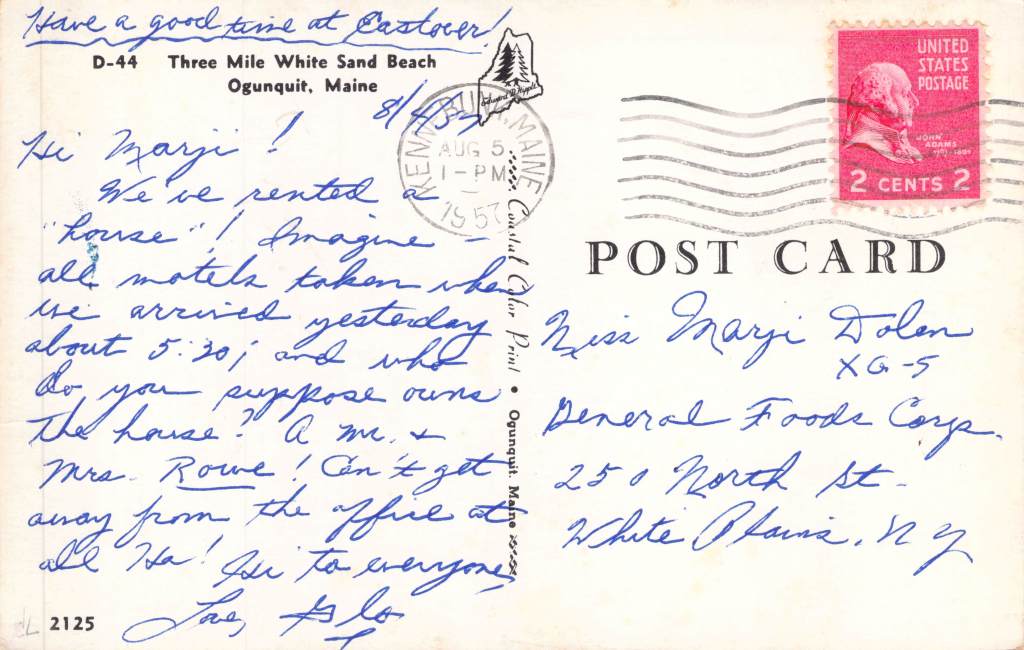 Have a good time at Eastover!
D-44 Three Mile White Sand Beach
Ogunquit, Maine
8/4/57
Hi Marji!
We've rented a
"house"! Imagine -
all motels taken when
we arrived yesterday
about 5:30; and who
do you suppose owns
the house? A Mr. &
Mrs. Rowe! Can't get
away from the office at
all Ha! Hi to everyone,
Love, Glo
2125
KENNEBUNK, MAINE
AUG 5
1-PM
1957
Coastal Color Print • Ogunquit, Maine
UNITED
STATES
POSTAGE
JOHN
ADAMS
2 CENTS 2
POST CARD
Miss Marji Dolen
XG-5
General Foods Corp.
250 North St.
White Plains, NY